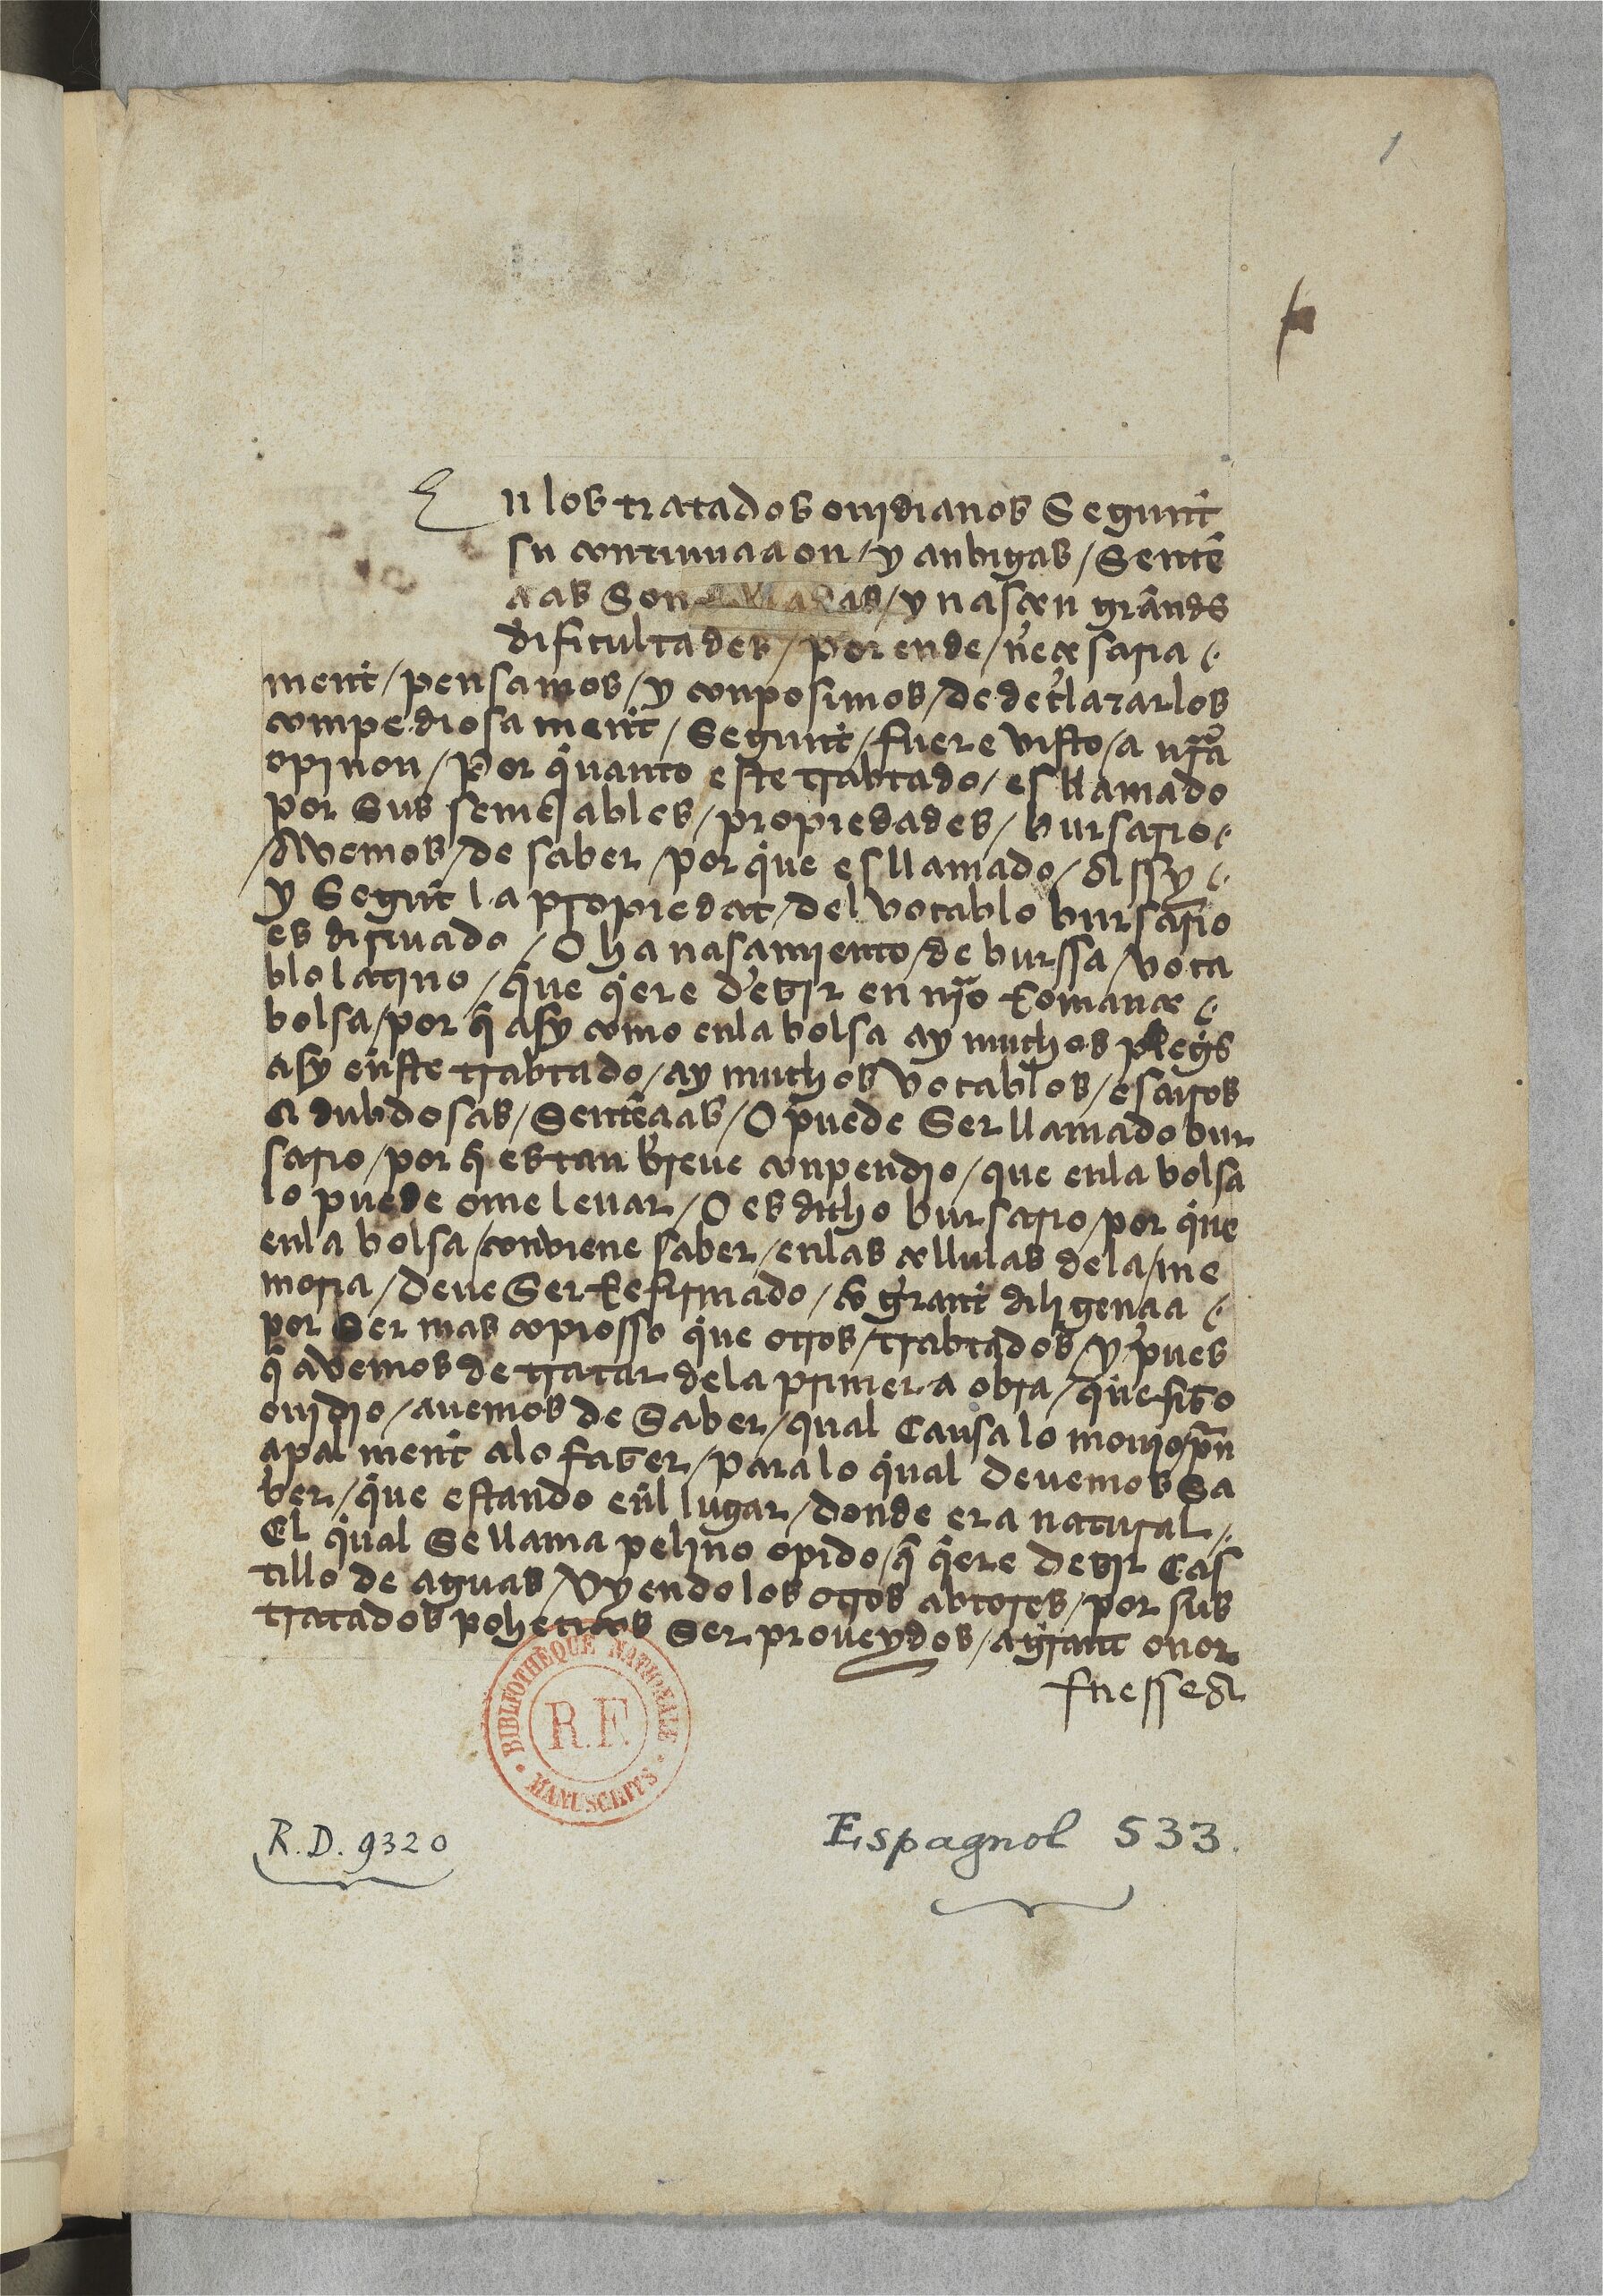 1
En los tratados ouidianos Segunt
su continuacion / y anbigas / Sentẽ
cias Son / y nascen grãnds
dificultades / por ende / neçesaria
ment / pensamos / y conposimos / de declararlos
compediosament / Segunt / fuere visto / a nr̃a
opinon / Por quanto este trabtado / es llamado
por Sus semejables / propiedades / bursario
Avemos / de saber / por que es llamado / Assy
y Segũt la propiedat / del vocablo bursario
es diriuado / O ha nasçimiento / de burssa / voca
blo latino / que qiere dezir en nr̃o Romançe
bolsa / por q̃ asy como enla bolsa ay muchos plegs
asy eñste trabtado / ay muchos vocablos / escuros
& dubdosas / Sentẽcias / O puede Ser llamado bur
sario / por q̃ es tan breue conpendio / que enla bolsa
lo puede ome leuar / O es dicho bursario / por que
enla bolsa / conviene saber / enlas çellulas dela / me
moria / deue Ser Refirmado / cõ grant diligencia
por Ser mas copiosso que otros / trabtados / y pues
q̃ avemos de tratar dela primera obra / que fizo
ouidio / auemos de Saber / qual Causa lo mouio / pñ
çipal ment alo fazer / para lo qual deuemos Sa
ber / que estando eñl lugar / donde era natural /
El qual Se llama peligno opido / q̃ qiere dezir Cas
tillo de aguas / Vyendo los otros abtores / por sus
tratados poheticos Ser proueydos / a grant onor
fuesse a
BIBLIOTHÈQUE NATIONALE
R.F.
MANUSCRITS
R.D. 9320
Espagnol 533.